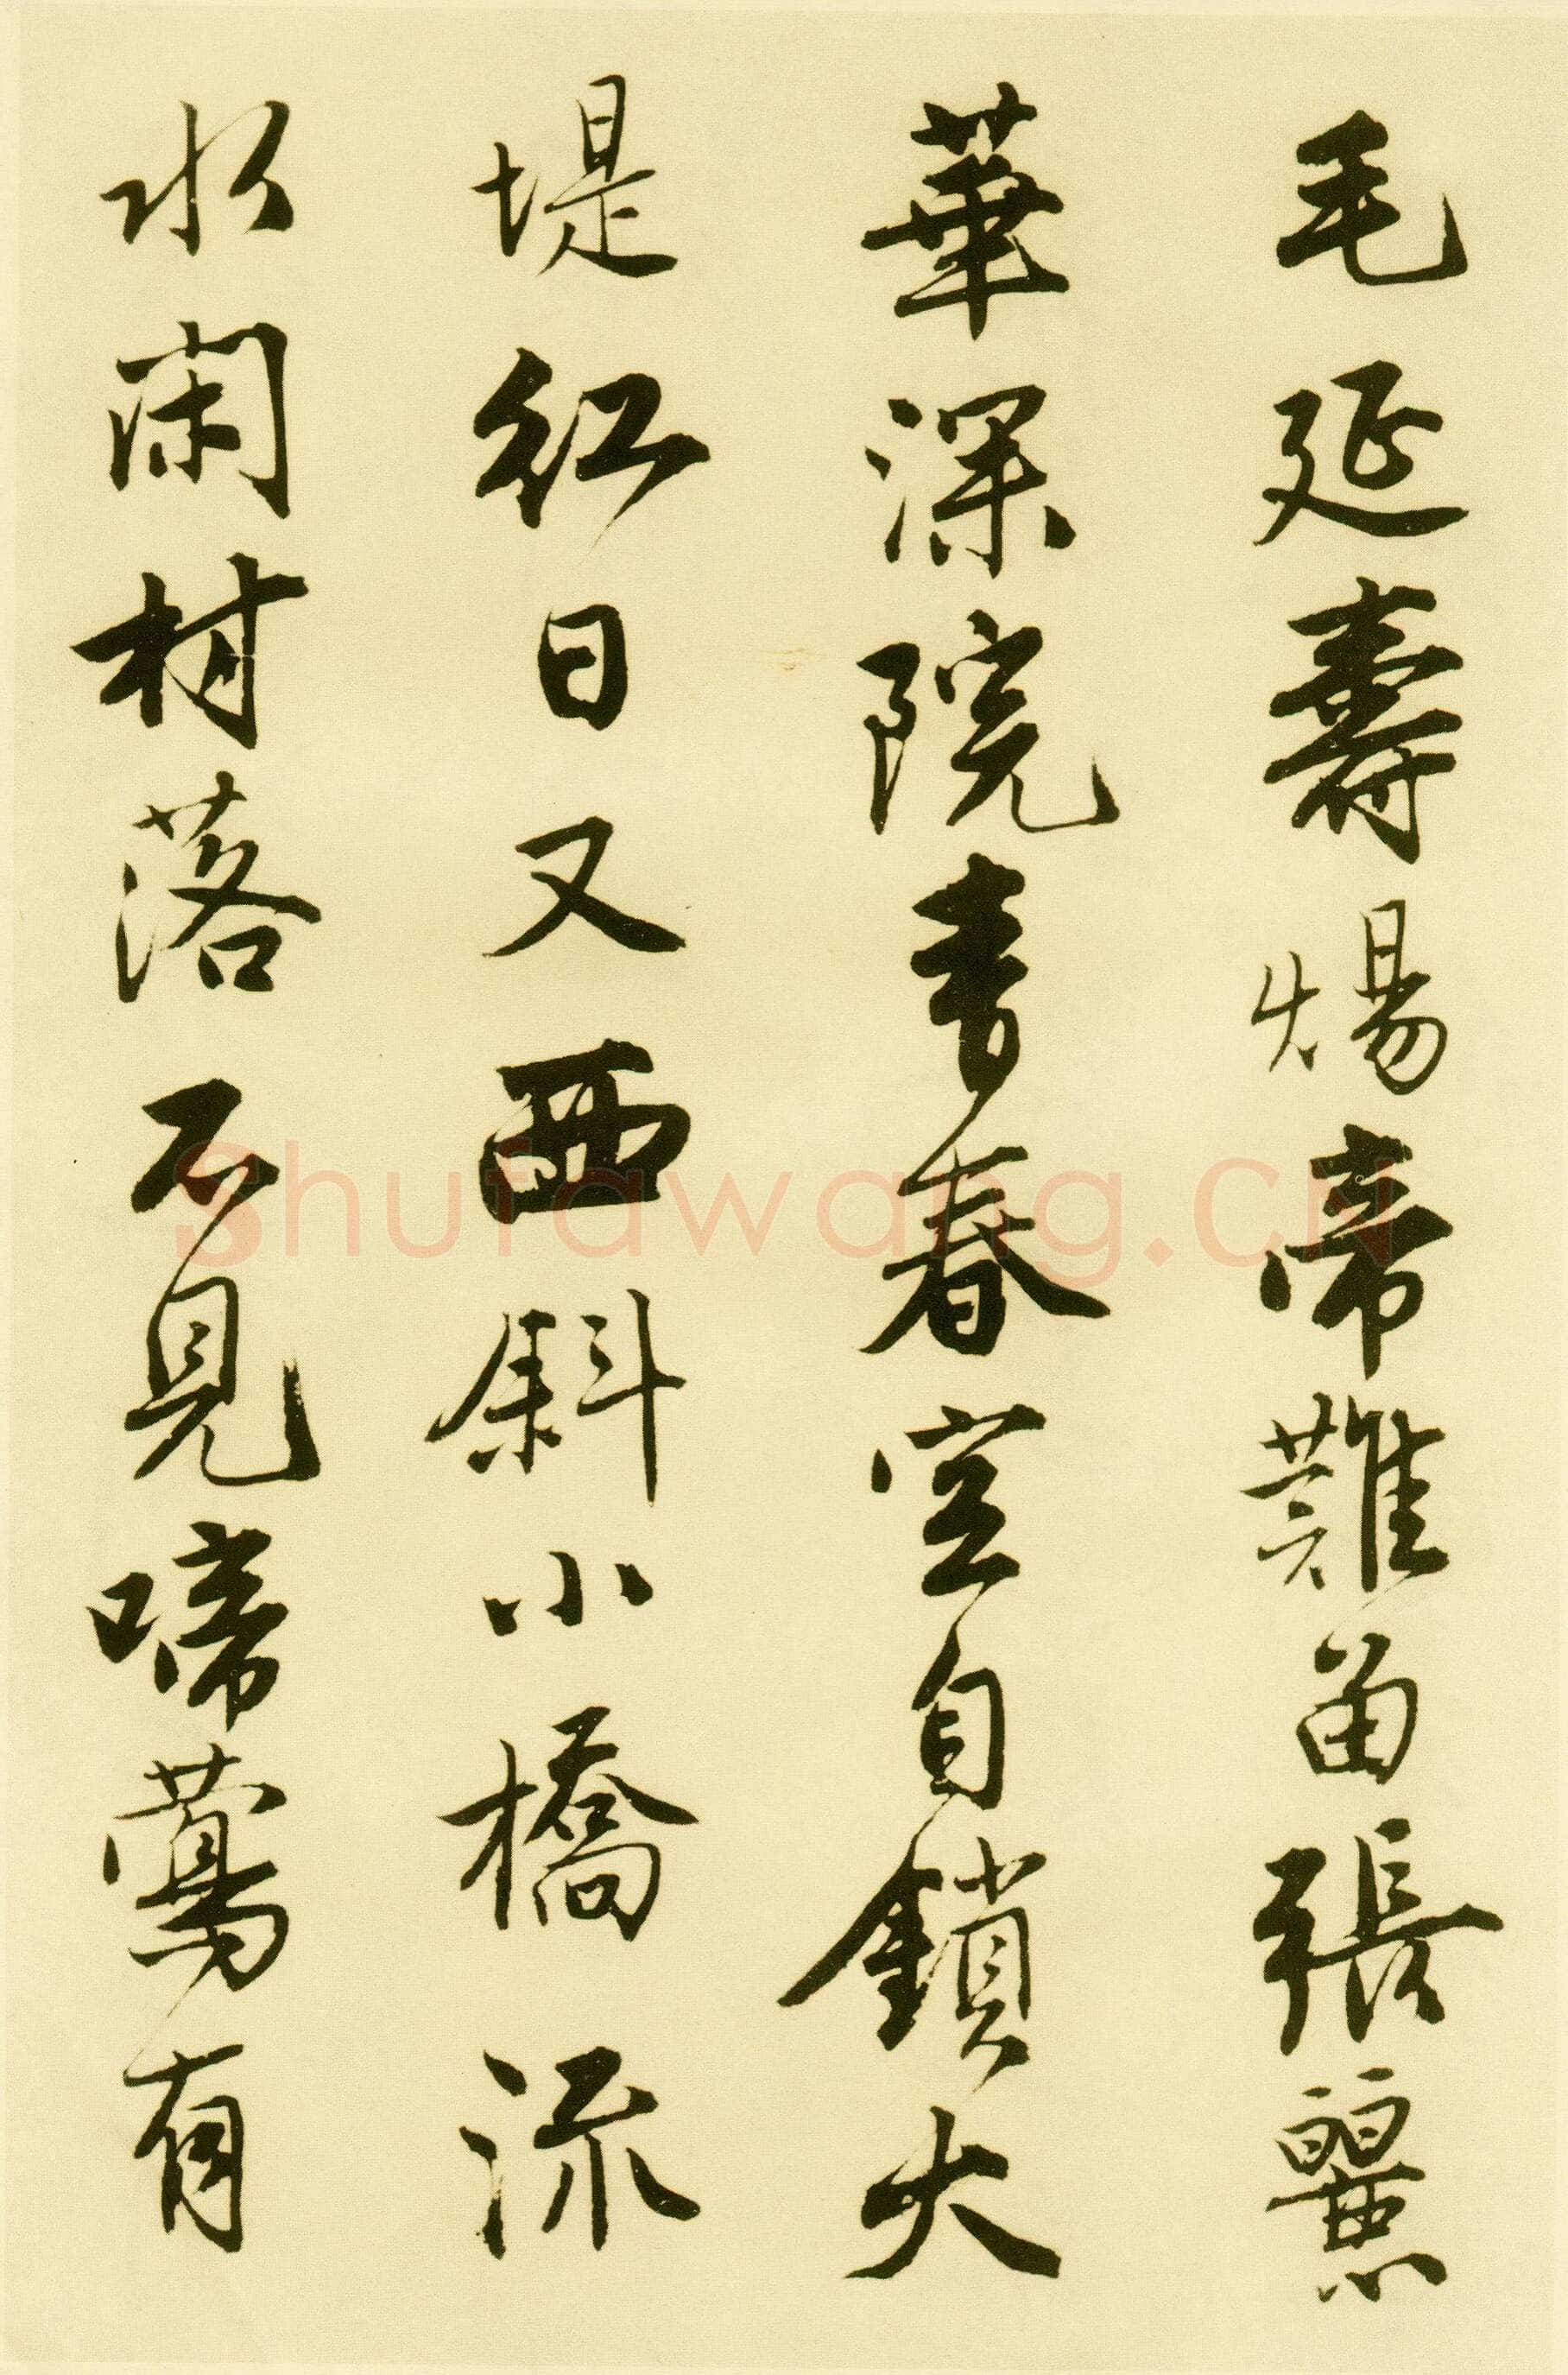 毛延壽煬帝難留張麗
華深院青春空自鎖大
堤紅日又西斜小橋流
水閑村落不見啼鶯有
shufawang.cn